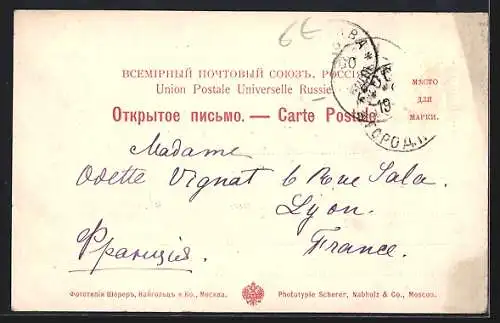 6€
ВСЕМІРНЫЙ ПОЧТОВЫЙ СОЮЗЪ. РОССІЯ
Union Postale Universelle Russie.
МѢСТО
ДЛЯ
МАРКИ.
Открытое письмо. — Carte Postale
19
Madame
Odette Vignat 6 Rue Sala.
Lyon.
Франція.
France.
Фототипія Шереръ, Набгольцъ и Ко., Москва.
Phototypie Scherer, Nabholz & Co., Moscou.